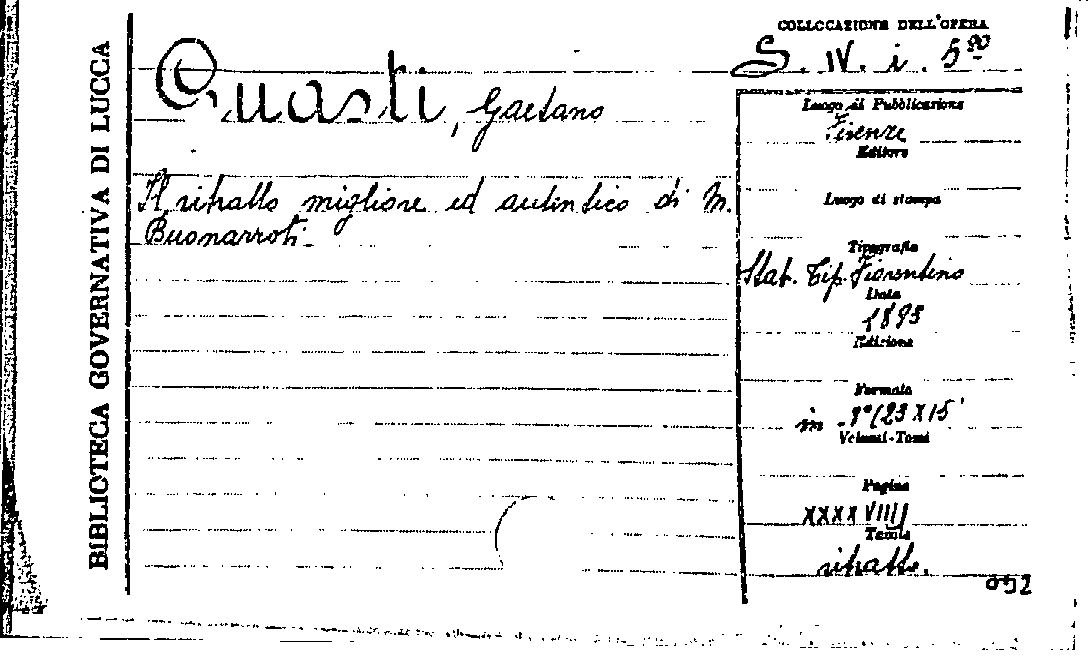 BIBLIOTECA GOVERNATIVA DI LUCCA
COLLOCAZIONE DELL'OPERA
S. IV. i. 590
Guasti, Gaetano
Il ritratto migliore ed autentico di M.
Buonarroti.
Luogo di Pubblicazione
Firenze
Editore
Luogo di stampa
Tipografia
Stab. Tip. Fiorentino
Data
1893
Edizione
Formato
in 8º (23 X 15
Volumi-Tomi
Pagine
XXXXVIIII
Tavole
ritratto.
092